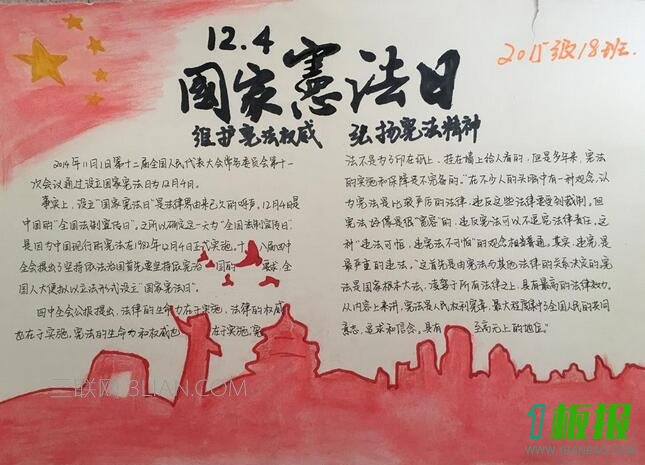 12.4
国家憲法日
2015级18班.
维护宪法权威 弘扬宪法精神
2014年11月1日第十二届全国人民代表大会常务委员会第十一
次会议通过设立国家宪法日为12月4日。
事实上，设立"国家宪法日"是法律界由来已久的呼声，12月4日是
中国的"全国法制宣传日"。之所以确定这一天为"全国法制宣传日"，
是因为中国现行的宪法在1982年12月4日正式实施。十八届四中
全会提出了坚持依法治国首先要坚持依宪 国的 要求，全
国人大便拟以立法形式设立"国家宪法日"。
四中全会公报提出，法律的生命力在于实施，法律的权威
也在于实施。宪法的生命力和权威也 在于实施。宪
法不是为了印在纸上、挂在墙上给人看的，但是多年来，宪法
的实施和保障是不完备的。"在不少人的头脑中有一种观念，认
为宪法是比较严厉的法律，违反这些法律要受到裁制，但
宪法好像是很"宽容"的，违反宪法可以不追究法律责任。这
种"违法可怕，违宪法不可怕"的观念相当普遍。其实，违宪是
最严重的违法。"这首先是由宪法与其他法律的关系决定的宪
法是国家根本大法，凌驾于所有法律之上，具有最高的法律效力。
从内容上来讲，宪法是人民权利宪章，最大程度集中了全国人民的共同
意志、追求和信念，具有 至高无上的地位。"
三联网 3LIAN.COM
1板报